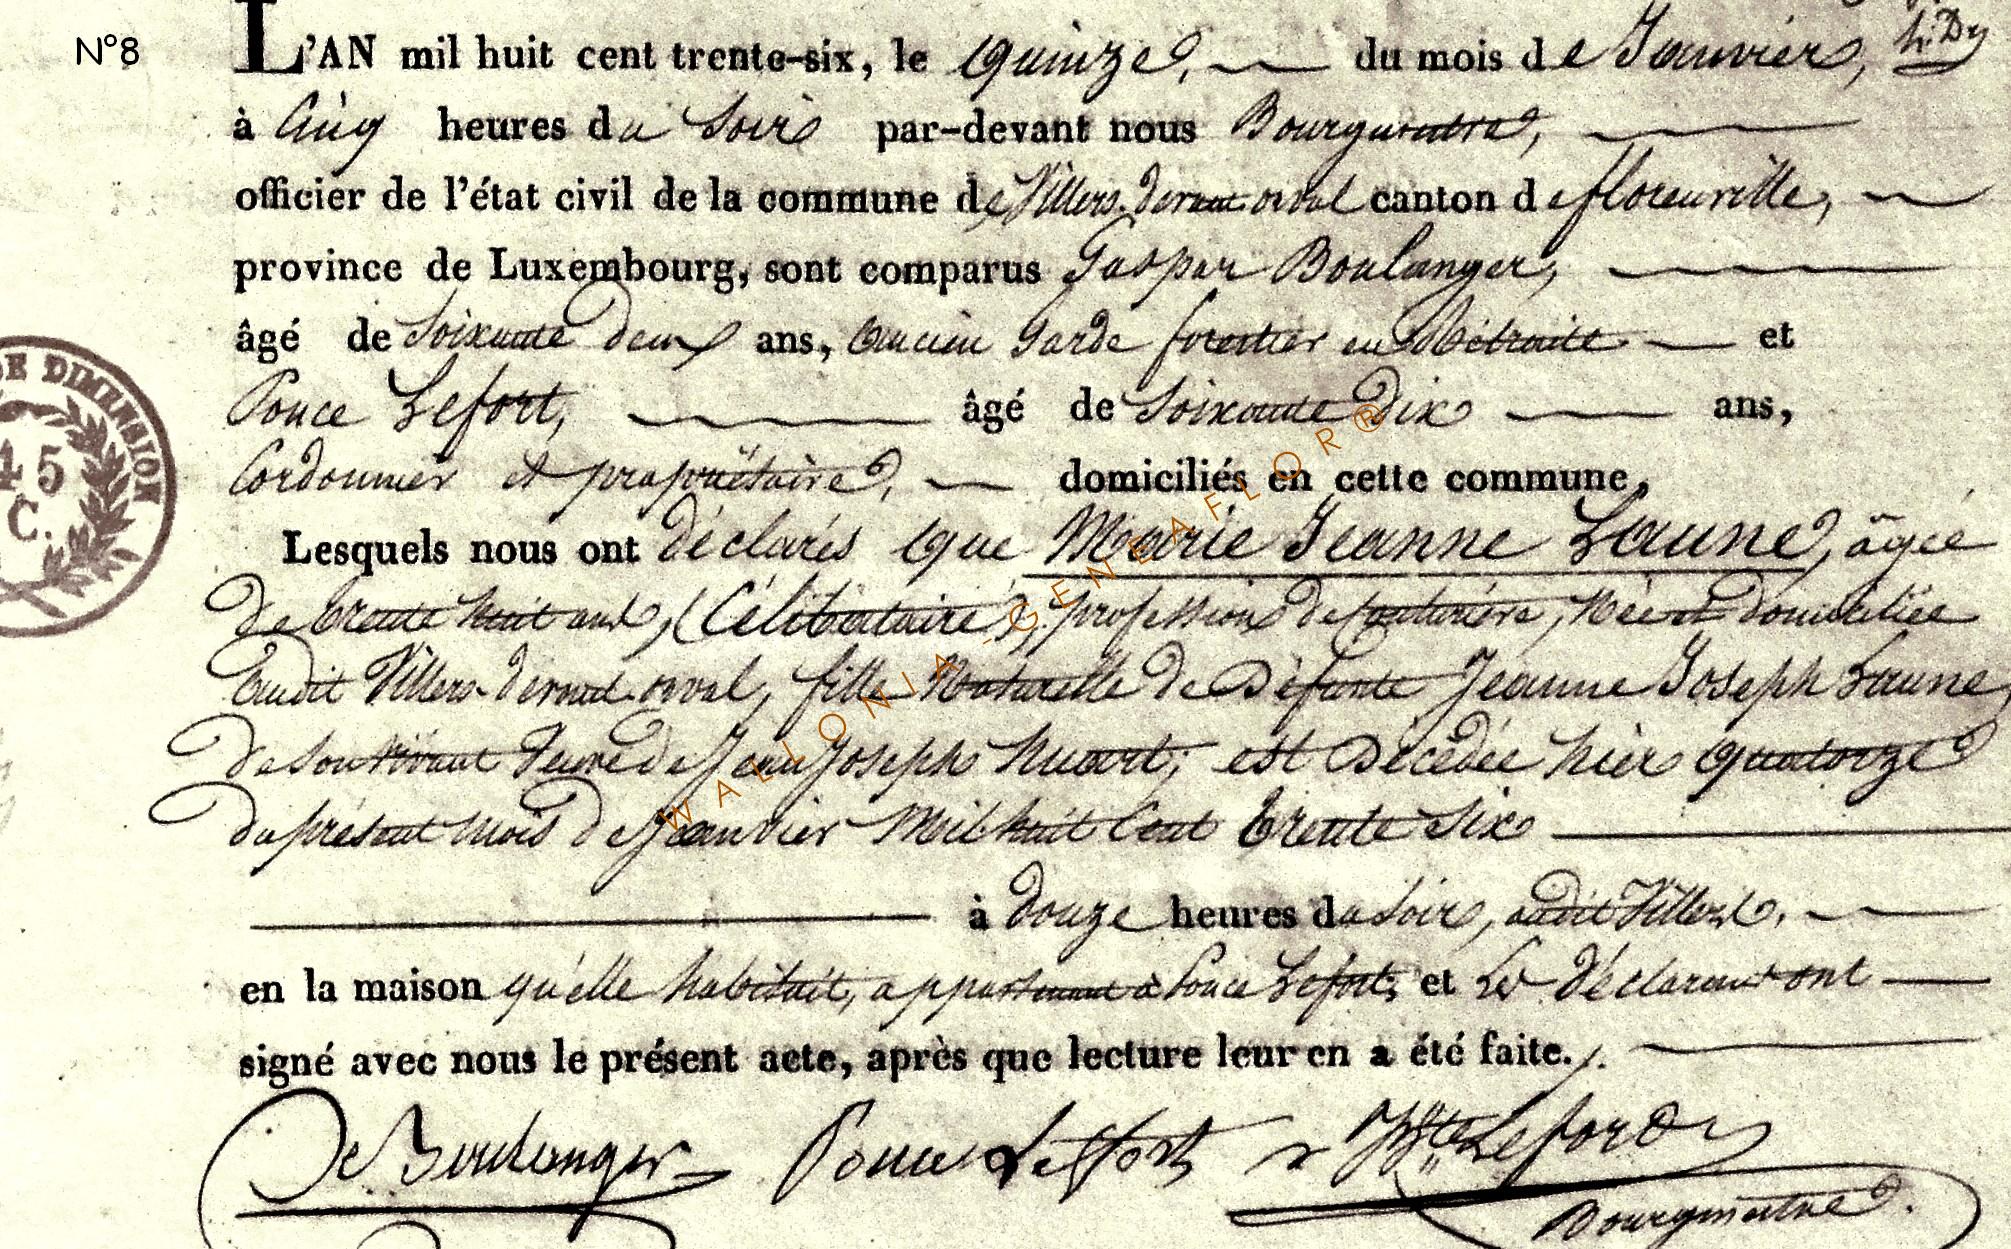 N°8
L'AN mil huit cent trente-six, le Quinze, du mois de Janvier,
à Cinq heures du Soir par-devant nous Bourgmestre,
officier de l'état civil de la commune de Villers-devant-orval canton de florenville,
province de Luxembourg, sont comparus Gaspar Boulanger,
âgé de Soixante deux ans, Ancien Garde forestier en Rétraite et
Ponce Lefort, âgé de Soixante Dix ans,
Cordonnier et propriétaire, domiciliés en cette commune,
Lesquels nous ont déclarés Que Marie Jeanne Launé, âgée
De trente huit ans, (Célibataire), profession de Couturière, Née et domiciliée
Audit Villers-devant-orval, fille Naturelle de Défunte Jeanne Joseph Launé,
De Son Vivant Femme de Jean Joseph Huart, est Décédée hier Quatorze
du présent Mois De Janvier Mil huit Cent trente Six
à Douze heures du Soir, audit Villers.
en la maison qu'elle habitait, appartenant à Ponce Lefort, et Les déclarant ont
signé avec nous le présent acte, après que lecture leur en a été faite.
DE DIMENSION
45
C.
WALLONIA-GENEAFLOR®
Boulanger Ponce Leffort Lefort
Bourgmestre.